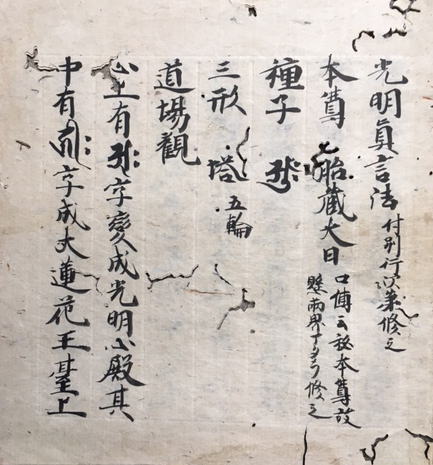 光明真言法 付別行次第修之
本尊 胎蔵大日 口傳云秘本尊故
雖兩界 修之
種子
三形 塔 五輪
道場觀
心上有 字變成光明心殿其
中有 字成大蓮花王臺上